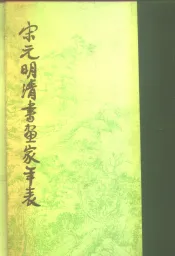 宋元明清書畫家年表